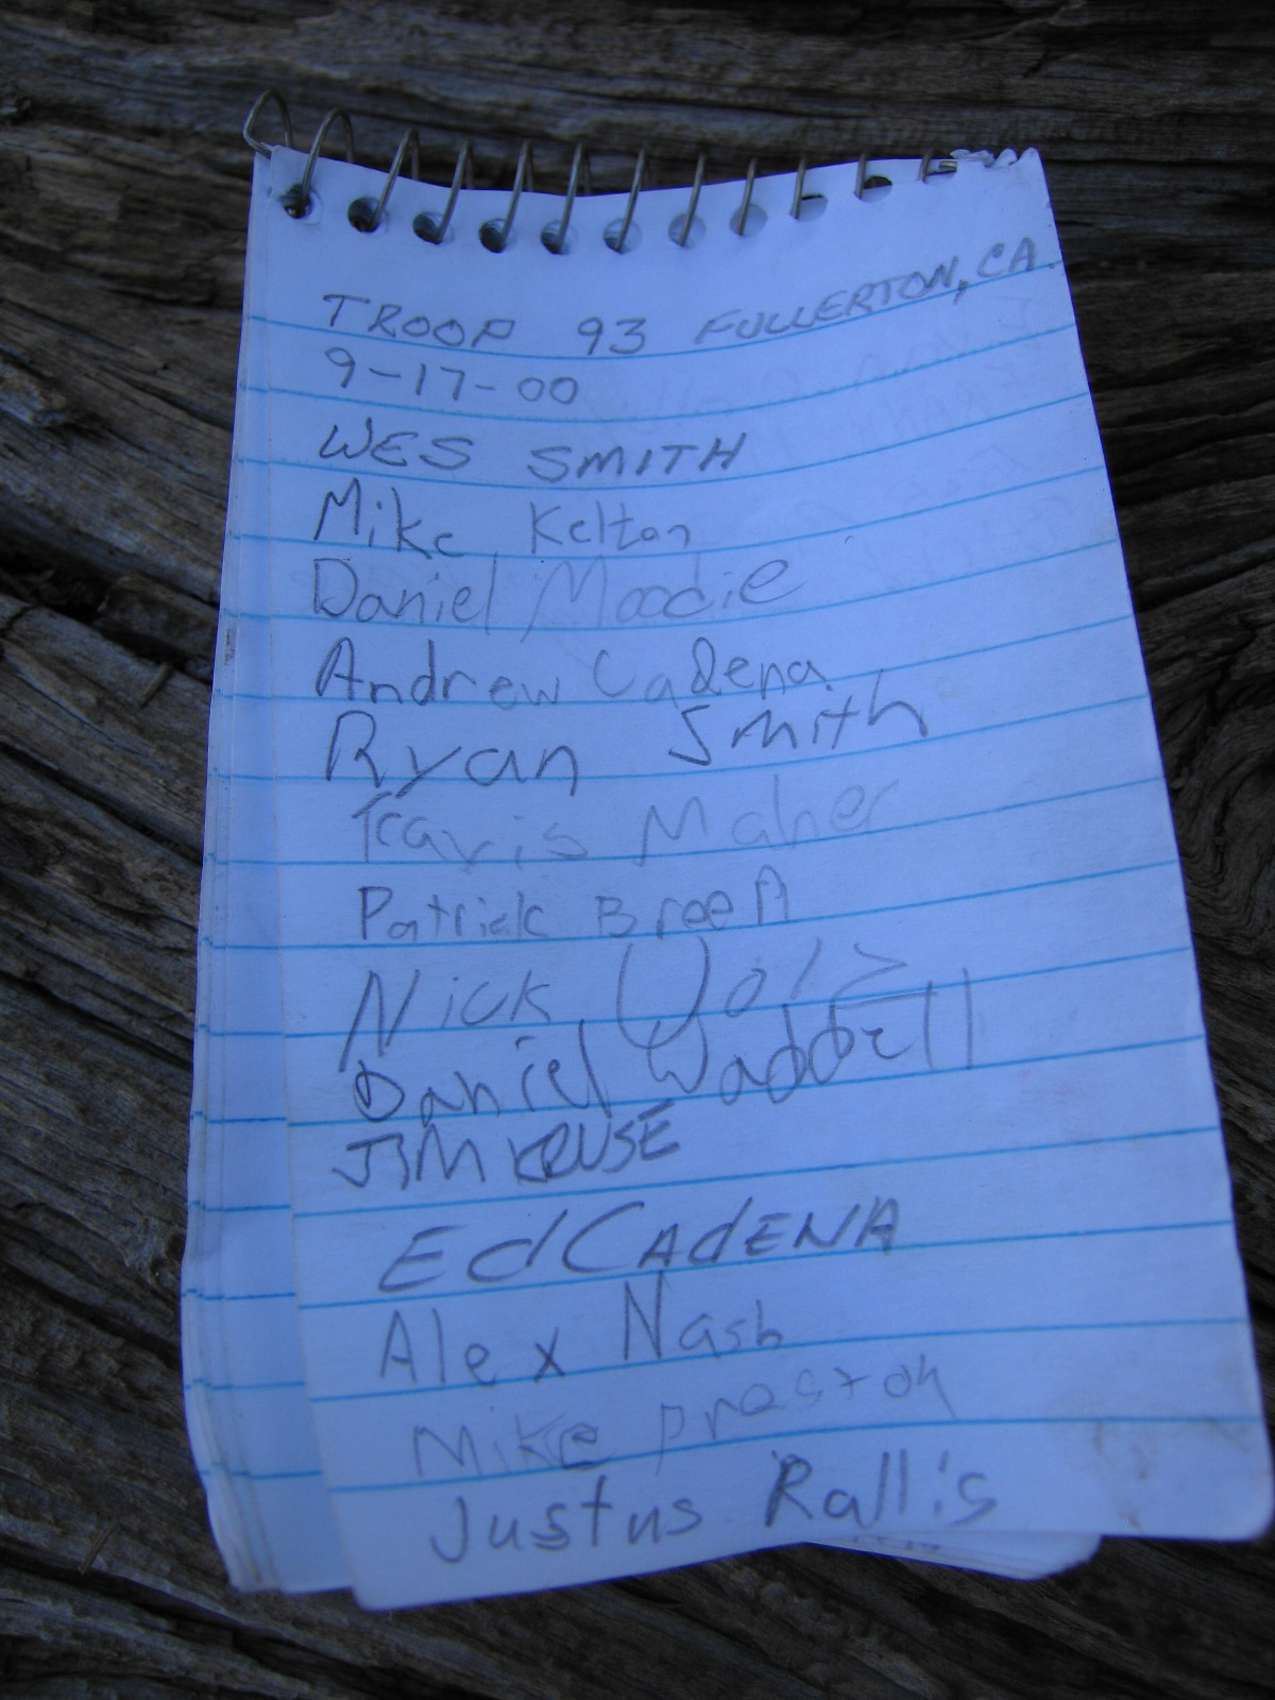 TROOP 93 FULLERTON, CA.
9-17-00
WES SMITH
Mike Kelton
Daniel Moodie
Andrew Cadena
Ryan Smith
Travis Maher
Patrick Breen
Nick Volz
Daniel Waddell
JIM KRUSE
Ed CAdENA
Alex Nash
Mike preston
Justus Rallis